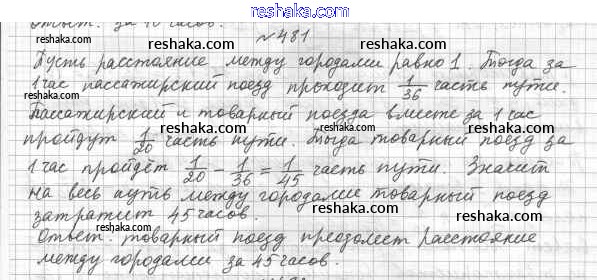 Ответ: за 10 часов.
№481
Пусть расстояние между городами равно 1. Тогда за
1 час пассажирский поезд проходит 1/36 часть пути.
Пассажирский и товарный поезда вместе за 1 час
пройдут 1/20 часть пути. Тогда товарный поезд за
1 час пройдёт 1/20 - 1/36 = 1/45 часть пути. Значит
на весь путь между городами товарный поезд
затратит 45 часов.
Ответ: товарный поезд преодолеет расстояние
между городами за 45 часов.
reshaka.com
reshaka.com
reshaka.com
reshaka.com
reshaka.com
reshaka.com
reshaka.com
reshaka.com
reshaka.com
reshaka.com
reshaka.com
reshaka.com
reshaka.com